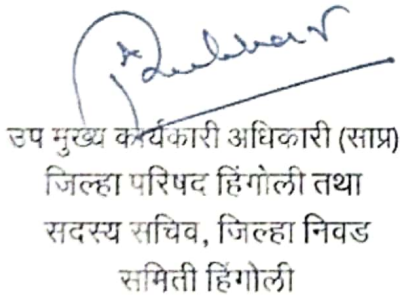 उप मुख्य कार्यकारी अधिकारी (साप्र)
जिल्हा परिषद हिंगोली तथा
सदस्य सचिव, जिल्हा निवड
समिती हिंगोली